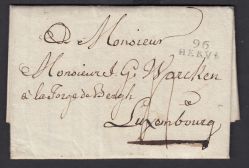 A Monsieur
96
HERVE
Monsieur G. Warcken
à la Forge de Bergh
à
Luxembourg